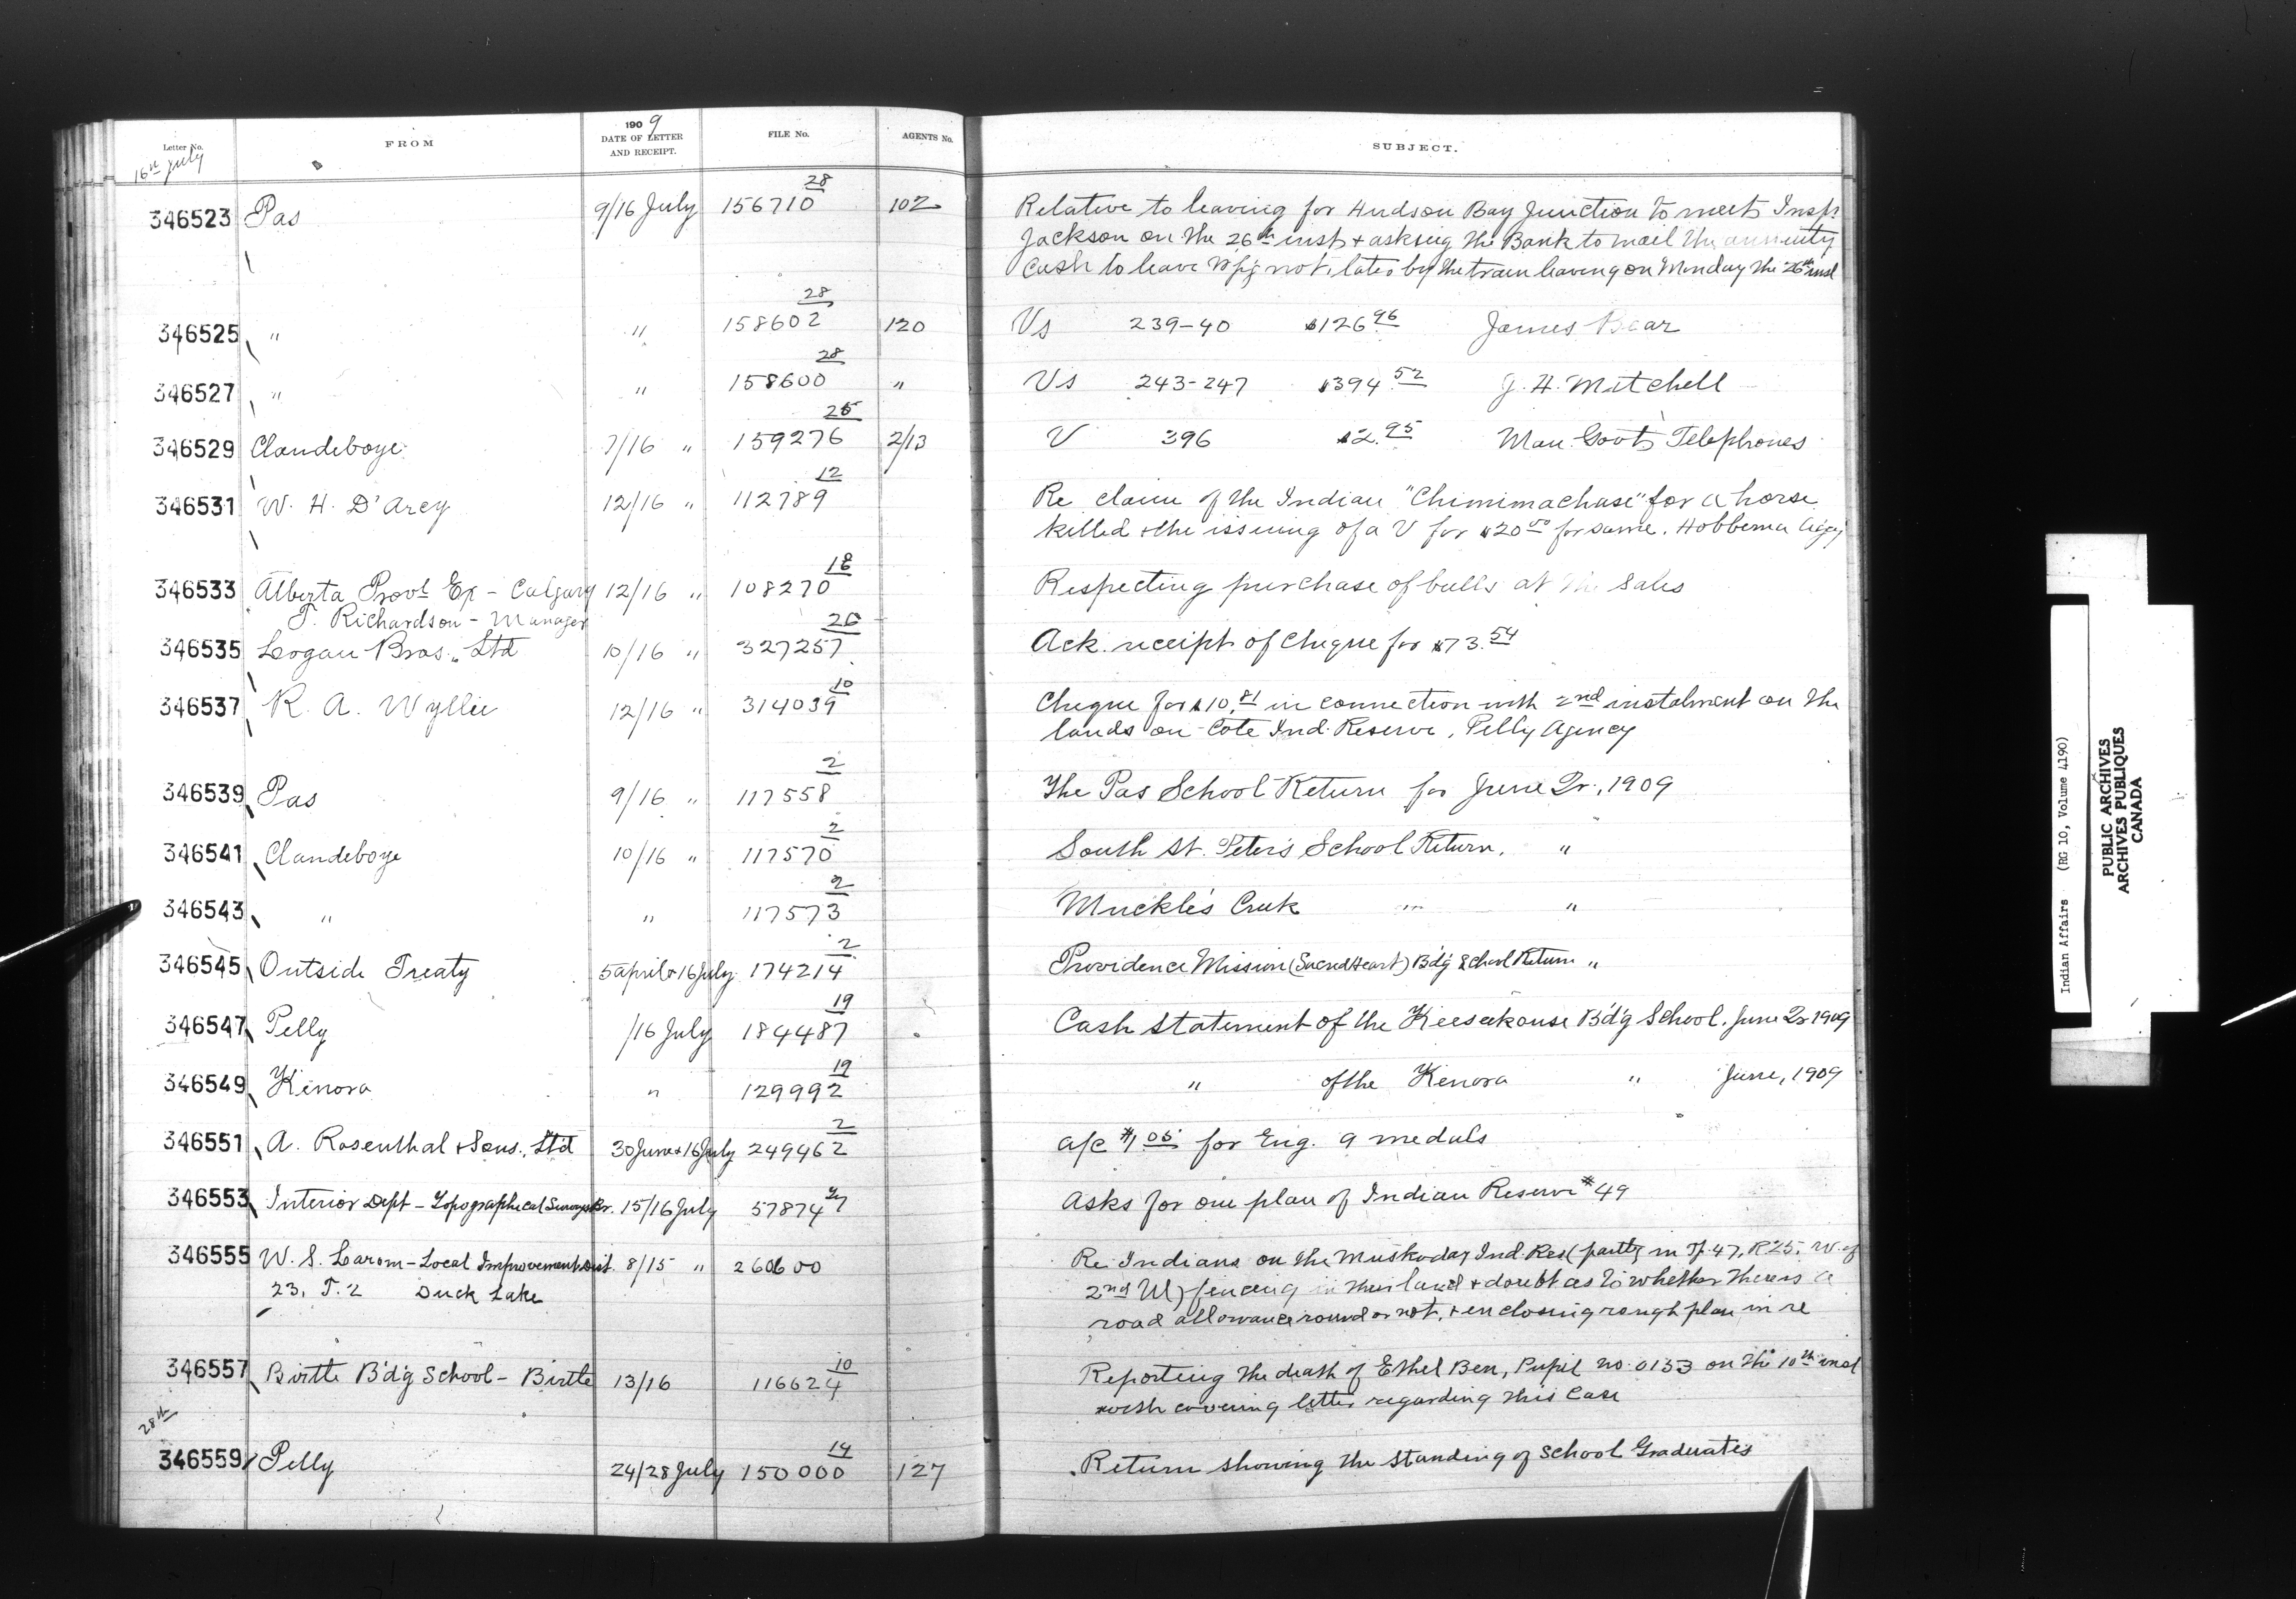 Letter No. FROM 1909 DATE OF LETTER AND RECEIPT. FILE No. AGENTS No. SUBJECT.
16th July
346523 Pas 9/16 July 156710 28 102 Relative to leaving for Hudson Bay Junction to meet Inspr
Jackson on the 26th inst & asking the Bank to mail the annuity
Cash to leave Wpg not later by the train leaving on Monday the 26th inst
346525 " " 158602 28 120 Vs 239-40 $126.96 James Bear
346527 " " 158600 28 " Vs 243-247 $394.52 J. H. Mitchell
346529 Clandeboye 7/16 " 159276 25 2/13 V 396 $2.95 Man. Govt's Telephones
346531 W. H. D'Arcy 12/16 " 112789 12 Re claim of the Indian "Chimimachase" for a horse
killed & the issuing of a V for $20.00 for same. Hobbema Agcy
346533 Alberta Provl Ex - Calgary 12/16 " 108270 18 Respecting purchase of bulls at the sales
T. Richardson - Manager
346535 Logan Bros., Ltd 10/16 " 327257 26 Ack. receipt of Cheque for $73.54
346537 R. A. Wyllie 12/16 " 314039 10 Cheque for $10.81 in connection with 2nd instalment on the
lands on Cote Ind. Reserve, Pelly Agency
346539 Pas 9/16 " 117558 2 The Pas School Return for June Qr., 1909
346541 Clandeboye 10/16 " 117570 2 South St. Peter's School Return. "
346543 " " 117573 2 Muckle's Creek " "
346545 Outside Treaty 5 April & 16 July 174214 2 Providence Mission (Sacred Heart) Bd'g School Return "
346547 Pelly /16 July 184487 19 Cash statement of the Keeseekouse Bd'g School. June Qr 1909
346549 Kenora " 129992 19 " of the Kenora " June, 1909
346551 A. Rosenthal & Sons., Ltd 30 June & 16 July 249462 2 a/c $1.05 for Eng. 9 medals
346553 Interior Dept - Topographical Surveys Br. 15/16 July 57874 Asks for one plan of Indian Reserve #49
346555 W. S. Larom - Local Improvement Dist. 8/15 " 260600 Re Indians on the Muskoday Ind. Res (partly in Tp. 47, R 25. W. of
23, T. 2 Duck Lake 2nd M) fencing in their land & doubt as to whether there is a
road allowance round or not, & enclosing rough plan in re
346557 Birtle Bd'g School - Birtle 13/16 116624 10 Reporting the death of Ethel Ben, Pupil no. 0133 on the 10th inst
with covering letter regarding this case
28th
346559 Pelly 24/28 July 150000 14 127 Return showing the standing of School Graduates
Indian Affairs (RG 10, Volume 4190)
PUBLIC ARCHIVES
ARCHIVES PUBLIQUES
CANADA